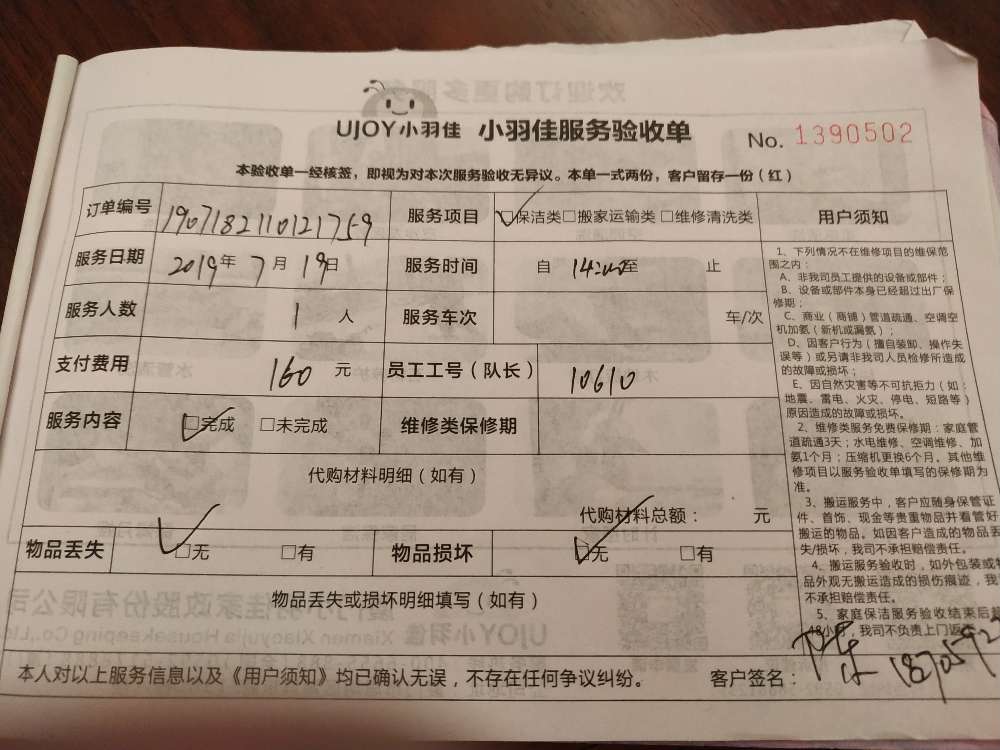 UJOY小羽佳 小羽佳服务验收单 No. 1390502
本验收单一经核签，即视为对本次服务验收无异议。本单一式两份，客户留存一份（红）
订单编号 1907182110121759 服务项目 □保洁类□搬家运输类□维修清洗类
服务日期 2019年 7月 19日 服务时间 自 14:00至 止
服务人数 1 人 服务车次 车/次
支付费用 160 元 员工工号（队长） 10610
服务内容 □完成 □未完成 维修类保修期
代购材料明细（如有）
代购材料总额： 元
物品丢失 □无 □有 物品损坏 □无 □有
物品丢失或损坏明细填写（如有）
本人对以上服务信息以及《用户须知》均已确认无误，不存在任何争议纠纷。 客户签名：
用户须知
1、下列情况不在维修项目的维保范
围之内：
A、非我司员工提供的设备或部件；
B、设备或部件本身已经超过出厂保
修期；
C、商业（商铺）管道疏通、空调空
机加氨（新机或漏氨）；
D、因客户行为（擅自装卸、操作失
误等）或另请非我司人员检修所造成
的故障或损坏；
E、因自然灾害等不可抗拒力（如：
地震、雷电、火灾、停电、短路等）
原因造成的故障或损坏。
2、维修类服务免费保修期：家庭管
道疏通3天；水电维修、空调维修、加
氨1个月；压缩机更换6个月。其他维
修项目以服务验收单填写的保修期为
准。
3、搬运服务中，客户应随身保管证
件、首饰、现金等贵重物品并看管好
搬运的物品。如因客户造成的物品丢
失/损坏，我司不承担赔偿责任。
4、搬运服务验收时，如外包装或物
品外观无搬运造成的损伤痕迹，我
不承担赔偿责任。
5、家庭保洁服务验收结束后超
48小时，我司不负责上门返